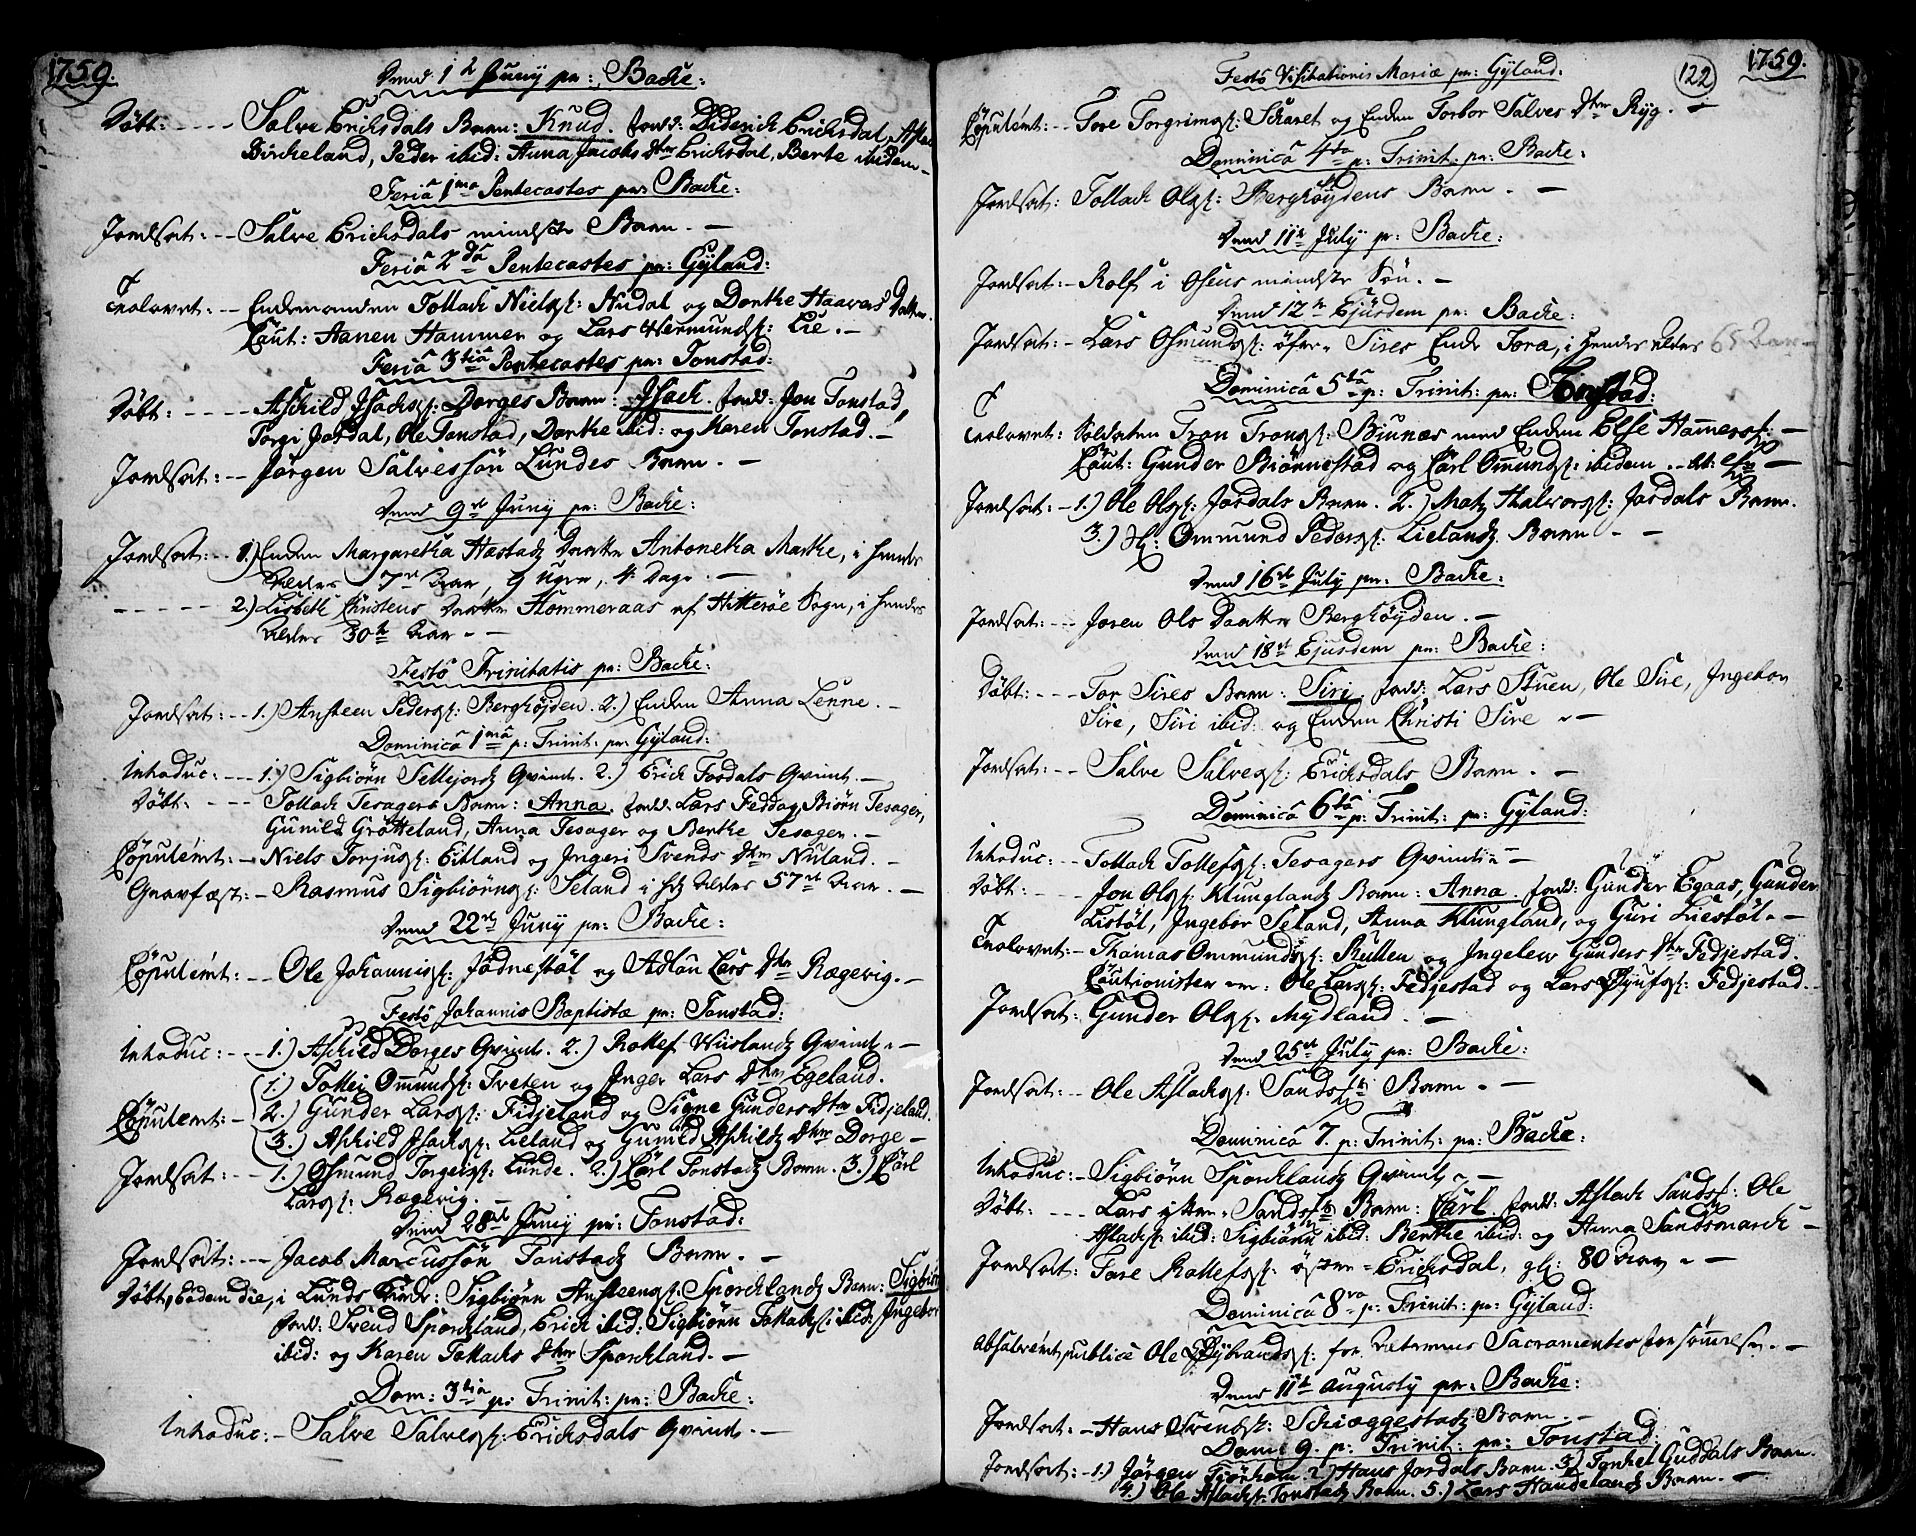 1759.
Dend 1t Juny pr: Backe:
Döbt: - - - - Salve Ericksdals Barn: Knud. fadd: Diderick Ericksdal, Aslac
Birckeland, Peder ibid: Anna Jacobs Dttr Ericksdal, Berte ibidem -
Feriâ 1ma Pentecostes pr: Backe:
Jordsat: - - Salve Ericksdals mindste Barn. -
Feriâ 2dâ Pentecostes pr: Gÿland:
Trolovet: - - Endemanden Tollack Nielsøs: Nudal og Dorthe Haavers Datter.
Caut: Aanen Hammer og Lars Hermunds: Lie. -
Feriâ 3tiâ Pentecostes pr: Tonstad:
Döbt: - - - - Askild Isacks: Dorges Barn: Isach. fadd: Jon Tonstad,
Torgi Josdal, Ole Tonstad, Dorthe ibid: og Karen Tonstad. -
Jordsat: - - Jörgen Salvessön Lundes Barn. -
Dend 9de Juny pr: Backe:
Jordsat: - - 1.) Enden Margaretha Hastads Daatter Antonetha Marthe, i hendes
Alders 7de Aar, 9 uger, 4 Dage. -
- - - - - 2.) Lisbeth Christens Daatter Flommeraas af Hitteröe Sogn, i hendes
Alders 30te Aar. -
Festô Trinitatis pr: Backe:
Jordsat: - - 1.) Ansteen Peders: Berghöyden. 2.) Enden Anna Lenne. -
Dominicâ 1mâ p: Trinit: pr: Gÿland:
Introduc: - - - 1.) Sigbiörn Sellejords Qvinde. 2.) Erick Josdals Qvinde. -
Döbt: - - - Tollack Tesagers Barn: Anna. fadd: Lars Feddag, Biörn Tesager,
Gunild Grötteland, Anna Tesager og Berthe Tesager. -
Copuleret: - Niels Torjus: Eitland og Ingeri Svends Dttr Nuland. -
Gravfæst: - Rasmus Sigbiörns: Seland i hs Alders 57de Aar. -
Dend 22de Juny pr: Backe:
Copuleret: - - Ole Johannis: Jödnestöl og Adlou Lars Dttr Rægevig. -
Festô Johannis Baptistæ pr: Tonstad:
Introduc: - - 1.) Askild Dorges Qvinde. 2.) Rollef Wiislands Qvinde. -
1.) Tollei Omunds: Treten og Inger Lars Dttr Egeland.
Copuleret: - 2.) Gunder Lars: Fidjeland og Signe Gunders Dttr Fidjeland.
3.) Askild Isacks: Lieland og Gunild Askilds Dttr Dorge -
Jordsat: - 1.) Osmund Torgers: Lunde. 2.) Carl Tonstads Barn. 3.) Carl
Lars: Rægevig. -
Dend 28de Juny pr: Tonstad:
Jordsat: - - Jacob Marcussön Tonstads Barn. -
Döbt, Eodem Die, i Lunds Kirke: Sigbiörn Ansteens: Sporcklands Barn: Sigbiörn
fadd: Svend Sporckland, Erick ibid: Sigbiörn Tollacks: ibid: Ingebor
ibid: og Karen Tollacks Dttr Sporckland. -
Dom: 3tiâ p: Trinit: pr: Backe:
Introduc: - Salve Salves: Ericksdals Qvinde. -
122
1759.
Festô Visitationis Mariæ pr: Gÿland:
Copuleret: - - Tore Torgrims: Skaret og Enden Torbor Salves Dttr Ryg. -
Dominicâ 4ta p: Trinit: pr: Backe:
Jordsat: Tollack Ols: Berghöydens Barn. -
Dend 11te July pr: Backe:
Jordsat: - Rolf i Osens mindste Sön. -
Dend 12te Ejusdem pr: Backe:
Jordsat: - Lars Osmunds: öfre Sires Enke Tora, i hendes Alders 65 Aar -
Dominicâ 5tâ p: Trinit: pr: Tonstad:
Trolovet: Soldaten Tron Trons: Biunæs med Enden Else Hammers: -
Caut: Gunder Biönnestad og Carl Omunds: ibidem. -
Jordsat: - 1.) Ole Ols: Josdals Barn. 2.) Mats Halvors: Josdals Barn.
3.) Ommund Peders: Lielands Barn - -
Dend 16de July pr: Backe:
Jordsat: - - Joren Ols Daatter Berghöyden. -
Dend 18de Ejusdem pr: Backe:
Döbt: - - - Tor Sires Barn: Siri. fadd: Lars Stuen, Ole Sire, Ingebor
Sire, Siri ibid: og Enden Christi Sire -
Jordsat: - - Salve Salves: Ericksdals Barn. -
Dominicâ 6tâ p: Trinit: pr: Gÿland:
Introduc: - - Tollack Tollefs: Tesagers Qvinde -
Döbt: - - Jon Ols: Klunglands Barn: Anna. fadd: Gunder Egaas, Gunder
Listöl, Ingebor Seland, Anna Klungland, og Guri Liestöl. -
Trolovet: - Thomas Ommunds: Rullen og Ingelev Gunders Dttr Fedjestad.
Cautionister er: Ole Lars: Fedjestad og Lars Ejufs: Fedjestad. -
Jordsat: Gunder Ols: Mydland. -
Dend 25de July pr: Backe:
Jordsat: - - Ole Aslacks: Sands Barn. -
Dominicâ 7. p: Trinit: pr: Backe:
Introduc: - Sigbiörn Sporcklands Qvinde -
Döbt: - - - Lars ytter Sands Barn: Carl. fadd: Aslack Sands: Ole
Aslacks: ibid: Sigbiörn ibid: Berthe ibid: og Anna Sandsmarck -
Jordsat: Tore Rollefs: östre Ericksdal, gl: 80 Aar -
Dominicâ 8va p: Trinit: pr: Gÿland:
Absolveret, publicè Ole Sÿbrands: for Aeterens Sacramentes forsömmelse. -
Dend 11te Augusty pr: Backe:
Jordsat: - Hans Svends: Schiæggestads Barn. -
Domi 9. p: Trinit: pr: Tonstad:
Jordsat: - 1.) Jörgen Tiörhom. 2.) Hans Josdals Barn. 3.) Tonkel Guddals Barn.
4.) Ole Aslacks: Tonstads Barn. 5.) Lars Handelands Barn. -